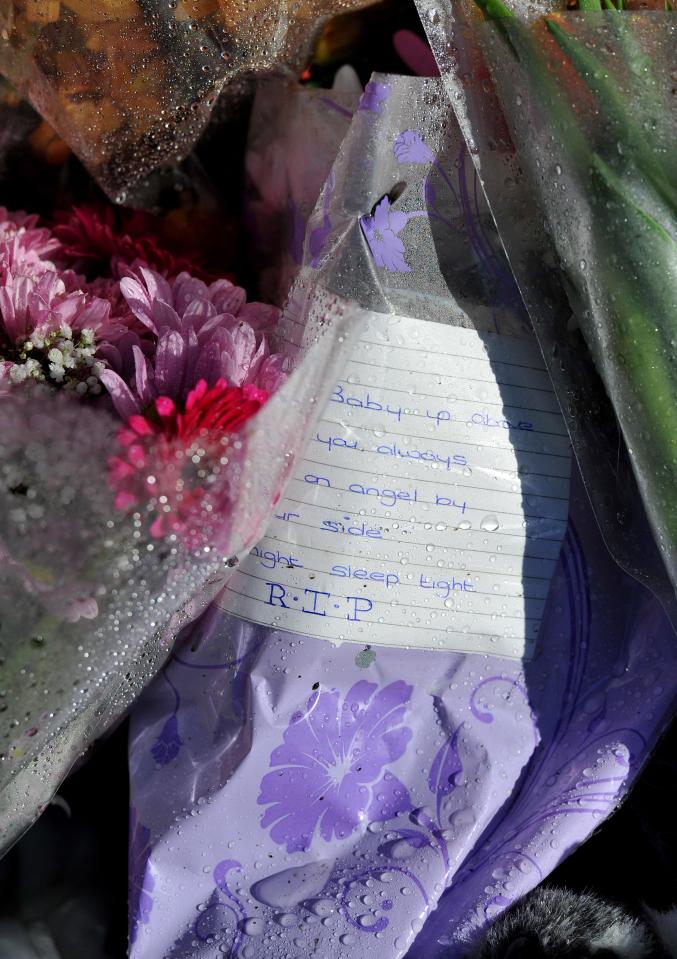 Baby up above
you always
an angel by
ur side
night sleep tight
R.I.P